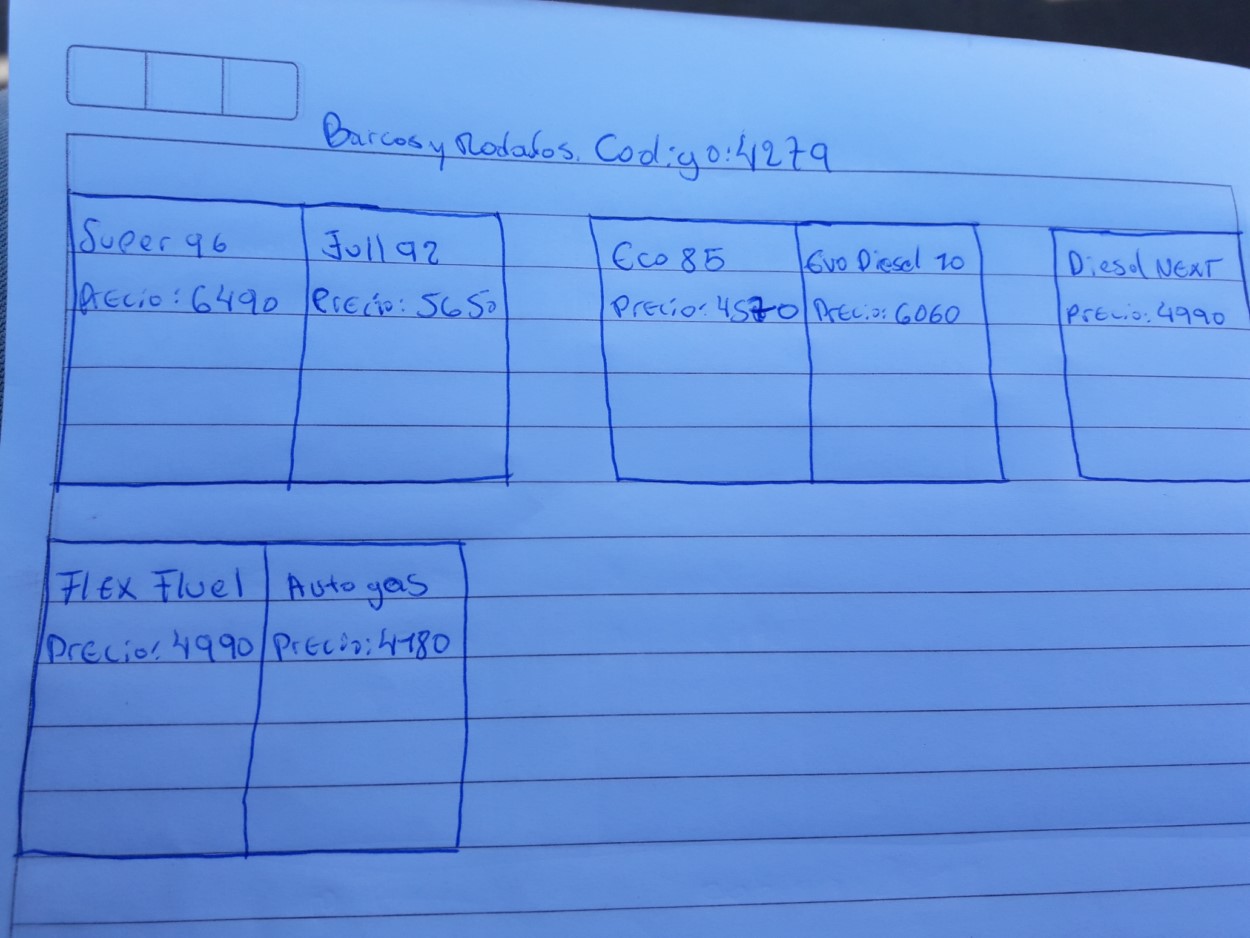 Barcos y Rodados. Codigo: 4279
Super 96
Precio: 6490
Full 92
Precio: 5650
Eco 85
Precio: 4570
Evo Diesel 10
Precio: 6060
Diesel NEXT
Precio: 4990
Flex Fluel
Precio: 4990
Auto gas
Precio: 4180